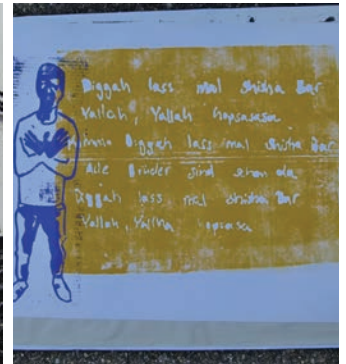 Diggah lass mal Shisha Bar
Yallah, Yallah hopsasasa
Diggah lass mal Shisha Bar
Alle Brüder sind schon da
Diggah lass mal Shisha Bar
Yallah, Yallha hopsasa